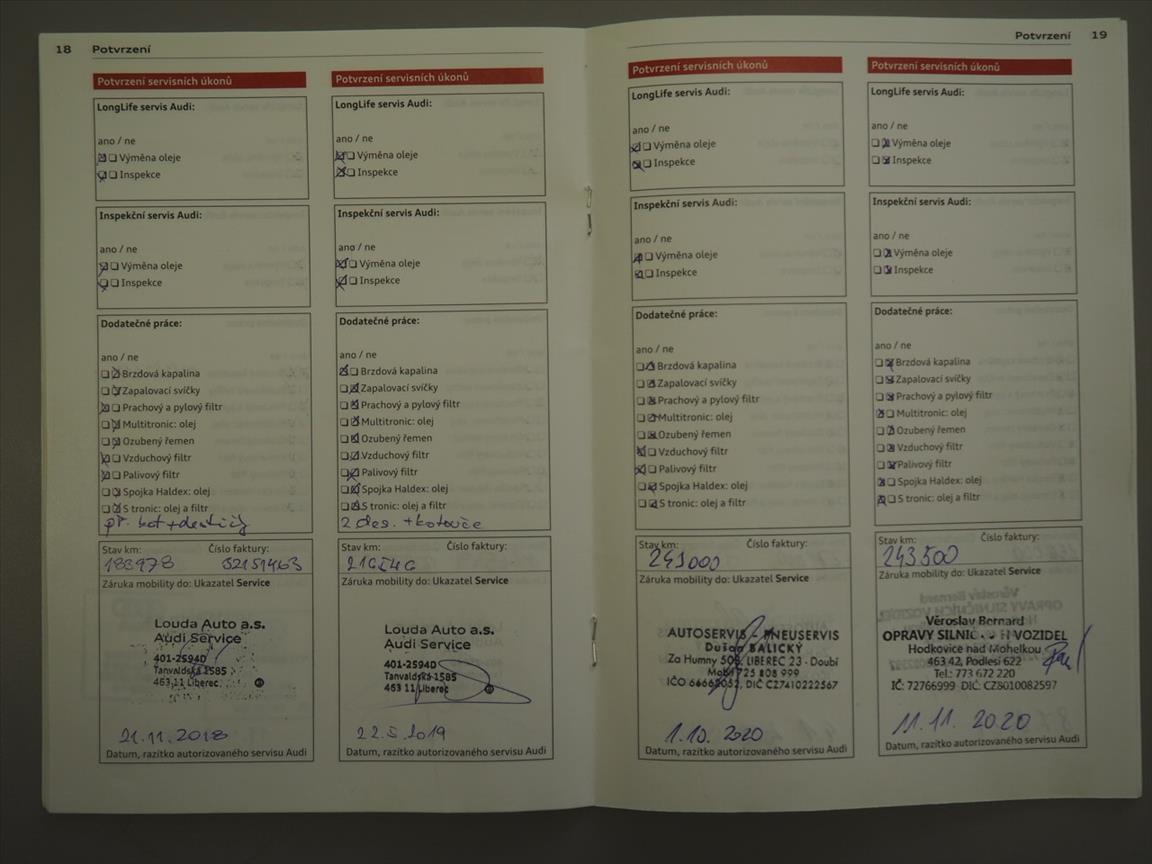 18 Potvrzení
Potvrzení servisních úkonů
LongLife servis Audi:
ano / ne
Výměna oleje
Inspekce
Inspekční servis Audi:
ano / ne
Výměna oleje
Inspekce
Dodatečné práce:
ano / ne
Brzdová kapalina
Zapalovací svíčky
Prachový a pylový filtr
Multitronic: olej
Ozubený řemen
Vzduchový filtr
Palivový filtr
Spojka Haldex: olej
S tronic: olej a filtr
Stav km: Číslo faktury:
Záruka mobility do: Ukazatel Service
Louda Auto a.s.
Audi Service
401-25940
Tanvaldská 1585
463 11 Liberec
21.11.2018
Datum, razítko autorizovaného servisu Audi
Potvrzení servisních úkonů
LongLife servis Audi:
ano / ne
Výměna oleje
Inspekce
Inspekční servis Audi:
ano / ne
Výměna oleje
Inspekce
Dodatečné práce:
ano / ne
Brzdová kapalina
Zapalovací svíčky
Prachový a pylový filtr
Multitronic: olej
Ozubený řemen
Vzduchový filtr
Palivový filtr
Spojka Haldex: olej
S tronic: olej a filtr
2 des. + kotouče
Stav km: Číslo faktury:
Záruka mobility do: Ukazatel Service
Louda Auto a.s.
Audi Service
401-25940
Tanvaldská 1585
463 11 Liberec
22.5.2019
Datum, razítko autorizovaného servisu Audi
Potvrzení 19
Potvrzení servisních úkonů
LongLife servis Audi:
ano / ne
Výměna oleje
Inspekce
Inspekční servis Audi:
ano / ne
Výměna oleje
Inspekce
Dodatečné práce:
ano / ne
Brzdová kapalina
Zapalovací svíčky
Prachový a pylový filtr
Multitronic: olej
Ozubený řemen
Vzduchový filtr
Palivový filtr
Spojka Haldex: olej
S tronic: olej a filtr
Stav km: Číslo faktury:
241000
Záruka mobility do: Ukazatel Service
AUTOSERVIS - PNEUSERVIS
Dušan BALICKÝ
Za Humny LIBEREC 23 - Doubí
725 808 999
IČO DIČ CZ7410222567
1.10. 2020
Datum, razítko autorizovaného servisu Audi
Potvrzení servisních úkonů
LongLife servis Audi:
ano / ne
Výměna oleje
Inspekce
Inspekční servis Audi:
ano / ne
Výměna oleje
Inspekce
Dodatečné práce:
ano / ne
Brzdová kapalina
Zapalovací svíčky
Prachový a pylový filtr
Multitronic: olej
Ozubený řemen
Vzduchový filtr
Palivový filtr
Spojka Haldex: olej
S tronic: olej a filtr
Stav km: Číslo faktury:
243500
Záruka mobility do: Ukazatel Service
Věroslav Bernard
OPRAVY VOZIDEL
Hodkovice nad Mohelkou
463 42, Podlesí 622
Tel.: 773 672 220
IČ: 72766999 DIČ: CZ8010082597
11.11. 2020
Datum, razítko autorizovaného servisu Audi